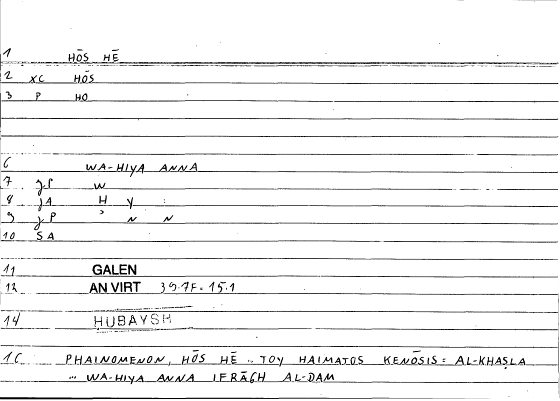 1 HŌS HĒ
2 XC HŌS
3 P HO
6 WA-HIYA ANNA
7 jP W
8 jA H Y :
9 jP ʾ N N
10 SA
11 GALEN
12 AN VIRT 39.7F-15.1
14 HUBAYSH
16 PHAINOMENON, HŌS HĒ .. TOY HAIMATOS KENŌSIS = AL-KHAṢLA
.. WA-HIYA ANNA IFRĀGH AL-DAM